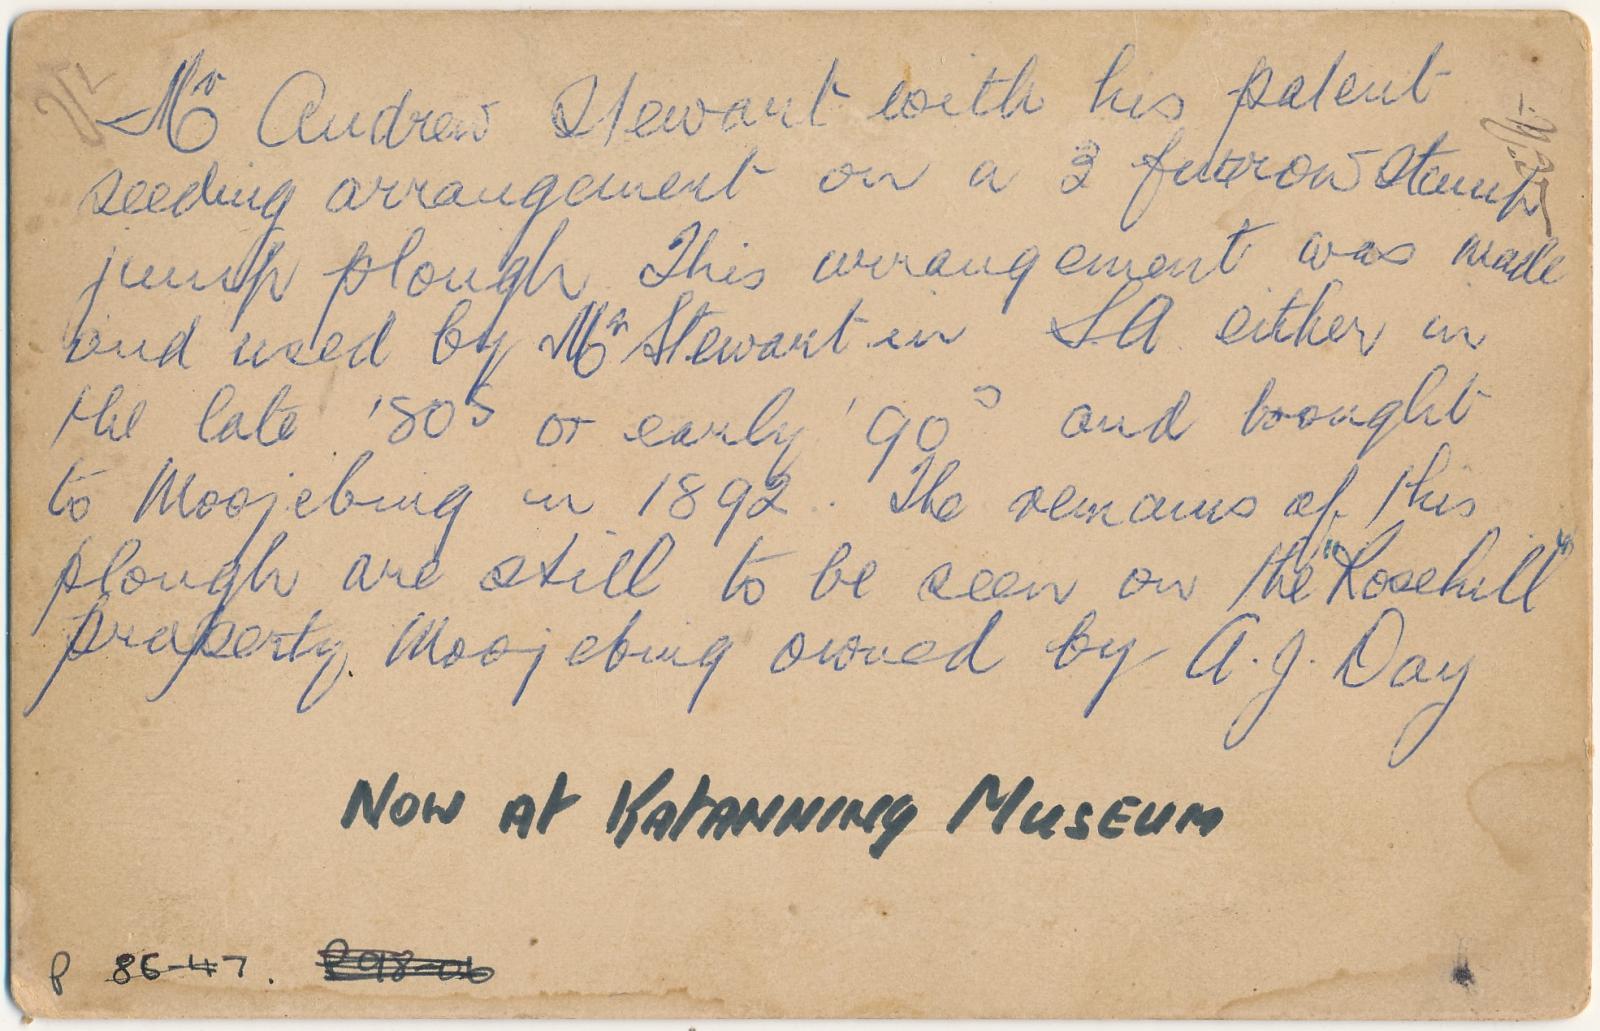 Mr Andrew Stewart with his patent
seeding arrangement on a 3 furrow stump
jump plough This arrangement was made
and used by Mr Stewart in S.A. either in
the late '80s or early '90s and brought
to Moojebing in 1892. The remains of this
plough are still to be seen on the "Rosehill"
property. Moojebing owned by A.J. Day
NOW AT KATANNING MUSEUM
P 86-47.